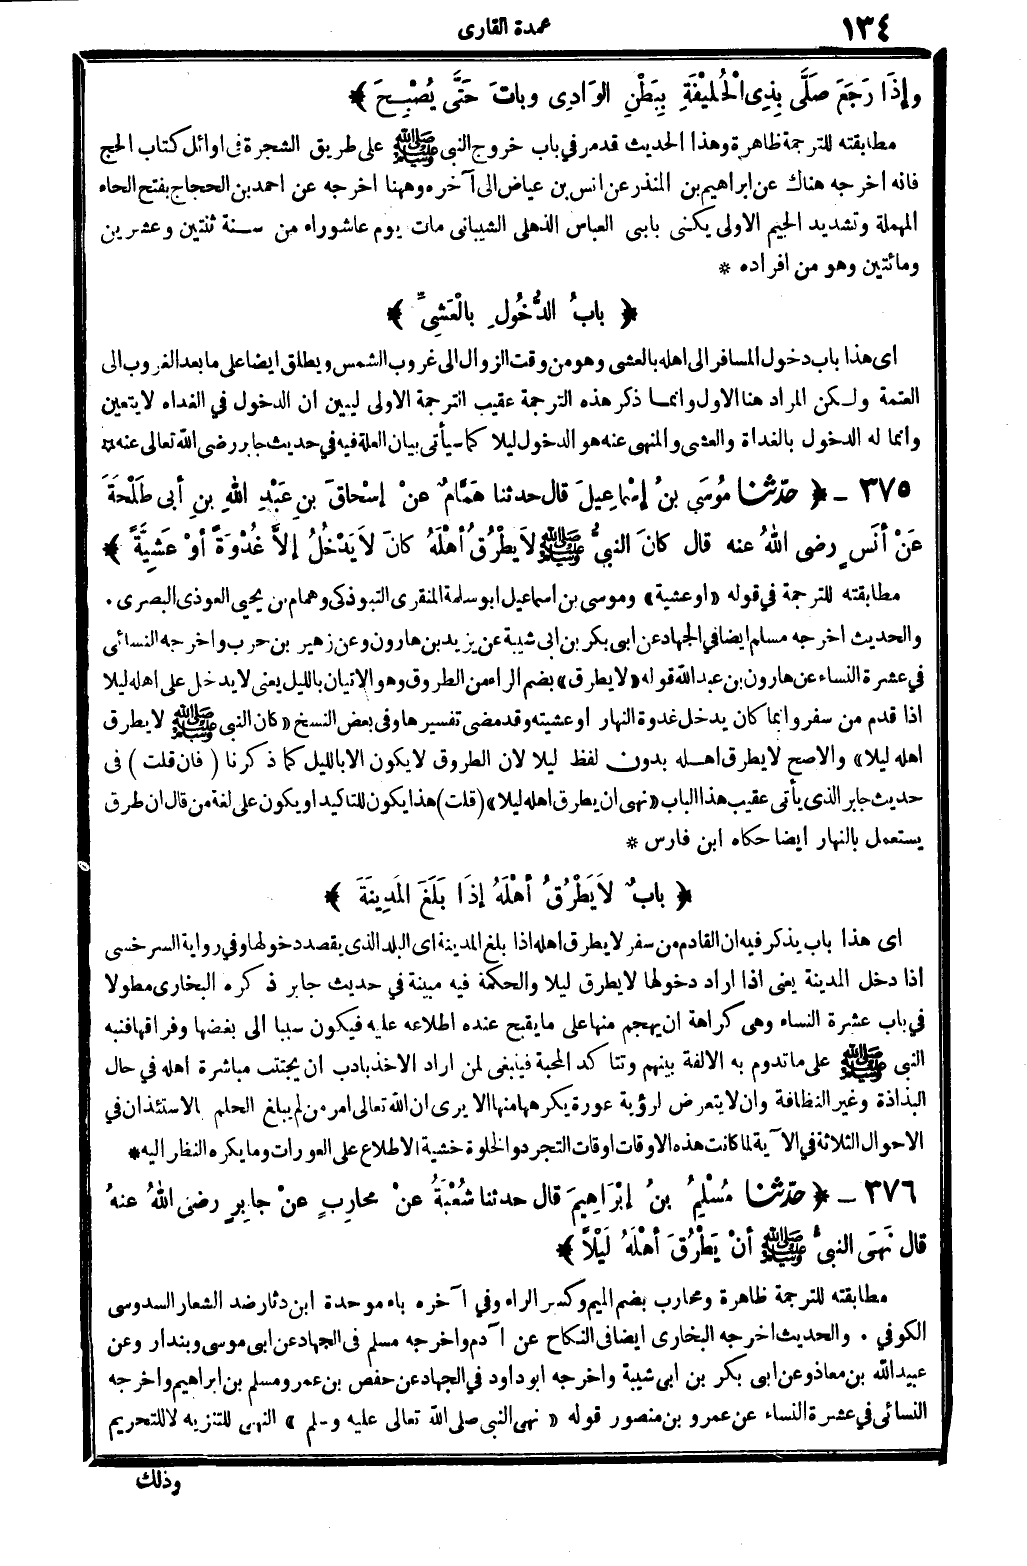 ١٣٤
عمدة القارى
وإذَا رَجَعَ صَلَّى بِذِى الْحُلَيْفَةِ بِبَطْنِ الوَادِى وباتَ حَتَّى يُصْبِحَ ﴾
مطابقته للترجمة ظاهرة وهذا الحديث قد مر في باب خروج النبى ﷺ على طريق الشجرة فى اوائل كتاب الحج
فانه اخرجه هناك عن ابراهيم بن المنذر عن انس بن عياض الى آخره وههنا اخرجه عن احمد بن الحجاج بفتح الحاء
المهملة وتشديد الجيم الاولى يكنى بابى العباس الذهلى الشيبانى مات يوم عاشوراء من سنة ثنتين وعشرين
ومائتين وهو من افراده *
﴿ بابُ الدُّخُولِ بالْعَشِىِّ ﴾
اى هذا باب دخول المسافر الى اهله بالعشى وهو من وقت الزوال الى غروب الشمس ويطلق ايضا على ما بعد الغروب الى
العتمة ولكن المراد هنا الاول وانما ذكر هذه الترجمة عقيب الترجمة الاولى ليبين ان الدخول في الغداه لا يتعين
وانما له الدخول بالغداة والعشى والمنهى عنه هو الدخول ليلا كما سيأتى بيان العلة فيه في حديث جابر رضى الله تعالى عنه *
٣٧٥ ـ ﴿ حدّثنا مُوسَى بنُ إسْماعِيلَ قال حدثنا هَمَّامٌ عنْ إسْحاقَ بنِ عَبْدِ اللهِ بنِ أبى طَلْحَةَ
عَنْ أنَسٍ رضى اللهُ عنه قال كانَ النبىُّ ﷺ لاَ يَطْرُقُ أهْلَهُ كانَ لاَ يَدْخُلُ إلاَّ غُدْوَةً أوْ عَشِيَّةً ﴾
مطابقته للترجمة في قوله «او عشية» وموسى بن اسماعيل ابو سلمة المنقرى التبوذكى وهمام بن يحيى العوذى البصرى .
والحديث اخرجه مسلم ايضا في الجهاد عن ابى بكر بن ابى شيبة عن يزيد بن هارون وعن زهير بن حرب واخرجه النسائى
في عشرة النساء عن هارون بن عبد الله قوله «لا يطرق» بضم الراء من الطروق وهو الاتيان بالليل يعنى لا يدخل على اهله ليلا
اذا قدم من سفر وانما كان يدخل غدوة النهار او عشيته وقد مضى تفسيرها وفى بعض النسخ «كان النبى ﷺ لا يطرق
اهله ليلا» والاصح لا يطرق اهله بدون لفظ ليلا لان الطروق لا يكون الا بالليل كما ذكرنا ( فان قلت ) فى
حديث جابر الذى يأتى عقيب هذا الباب «نهى ان يطرق اهله ليلا» (قلت) هذا يكون للتاكيد او يكون على لغة من قال ان طرق
يستعمل بالنهار ايضا حكاه ابن فارس *
﴿ بابٌ لاَ يَطْرُقُ أهْلَهُ إذَا بَلَغَ المَدِينَةَ ﴾
اى هذا باب يذكر فيه ان القادم من سفر لا يطرق اهله اذا بلغ المدينة اى البلد الذى يقصد دخولها وفي رواية السرخسى
اذا دخل المدينة يعنى اذا اراد دخولها لا يطرق ليلا والحكمة فيه مبينة في حديث جابر ذكره البخارى مطولا
في باب عشرة النساء وهى كراهة ان يهجم منها على ما يقبح عنده اطلاعه عليه فيكون سببا الى بغضها وفراقها فنبه
النبى ﷺ على ما تدوم به الالفة بينهم وتتاكد المحبة فينبغى لمن اراد الاخذ بادب ان يجتنب مباشرة اهله في حال
البذاذة وغير النظافة وان لا يتعرض لرؤية عورة يكرهها منها الا يرى ان الله تعالى امر من لم يبلغ الحلم بالاستئذان في
الاحوال الثلاثة في الآية لما كانت هذه الاوقات اوقات التجرد والخلوة خشية الاطلاع على العورات وما يكره النظر اليه *
٣٧٦ ـ ﴿ حدّثنا مُسْلِمُ بنُ إبْرَاهِيمَ قال حدثنا شُعْبَةُ عنْ محاربٍ عنْ جابِرٍ رضى اللهُ عنهُ
قال نَهَى النبىُّ ﷺ أنْ يَطْرُقَ أهْلَهُ لَيْلاً ﴾
مطابقته للترجمة ظاهرة ومحارب بضم الميم وكسر الراء وفي آخره باء موحدة ابن دثار ضد الشعار السدوسى
الكوفي . والحديث اخرجه البخارى ايضا فى النكاح عن آدم واخرجه مسلم فى الجهاد عن ابى موسى وبندار وعن
عبيد الله بن معاذ وعن ابى بكر بن ابى شيبة واخرجه ابو داود في الجهاد عن حفص بن عمر ومسلم بن ابراهيم واخرجه
النسائى في عشرة النساء عن عمرو بن منصور قوله « نهى النبى صلى الله تعالى عليه وسلم » النهى للتنزيه لا للتحريم
وذلك